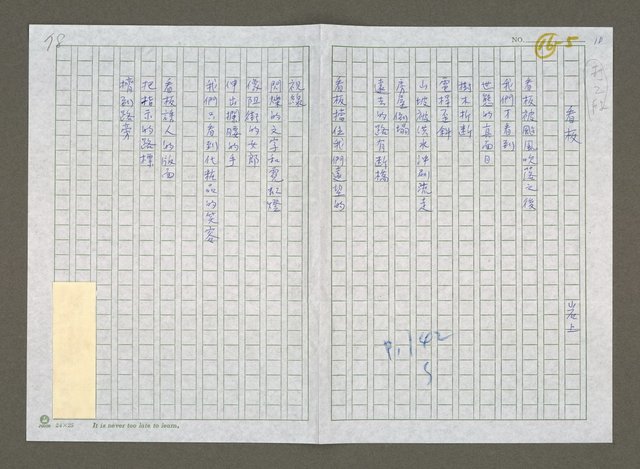 NO.
16-5
18
看板
岩上
看板被颱風吹落之後
我們才看到
世態的真面目
樹木折斷
電桿歪斜
山坡被洪水沖刷流走
房屋倒塌
遠去的路有斷橋
看板擋住我們遠望的
視線
閃爍的文字和霓虹燈
像阻街的女郎
伸出攔腰的手
我們只看到化粧品的笑容
看板誘人的版面
把指示的路標
擠到路旁
P.142
24×25
It is never too late to learn.